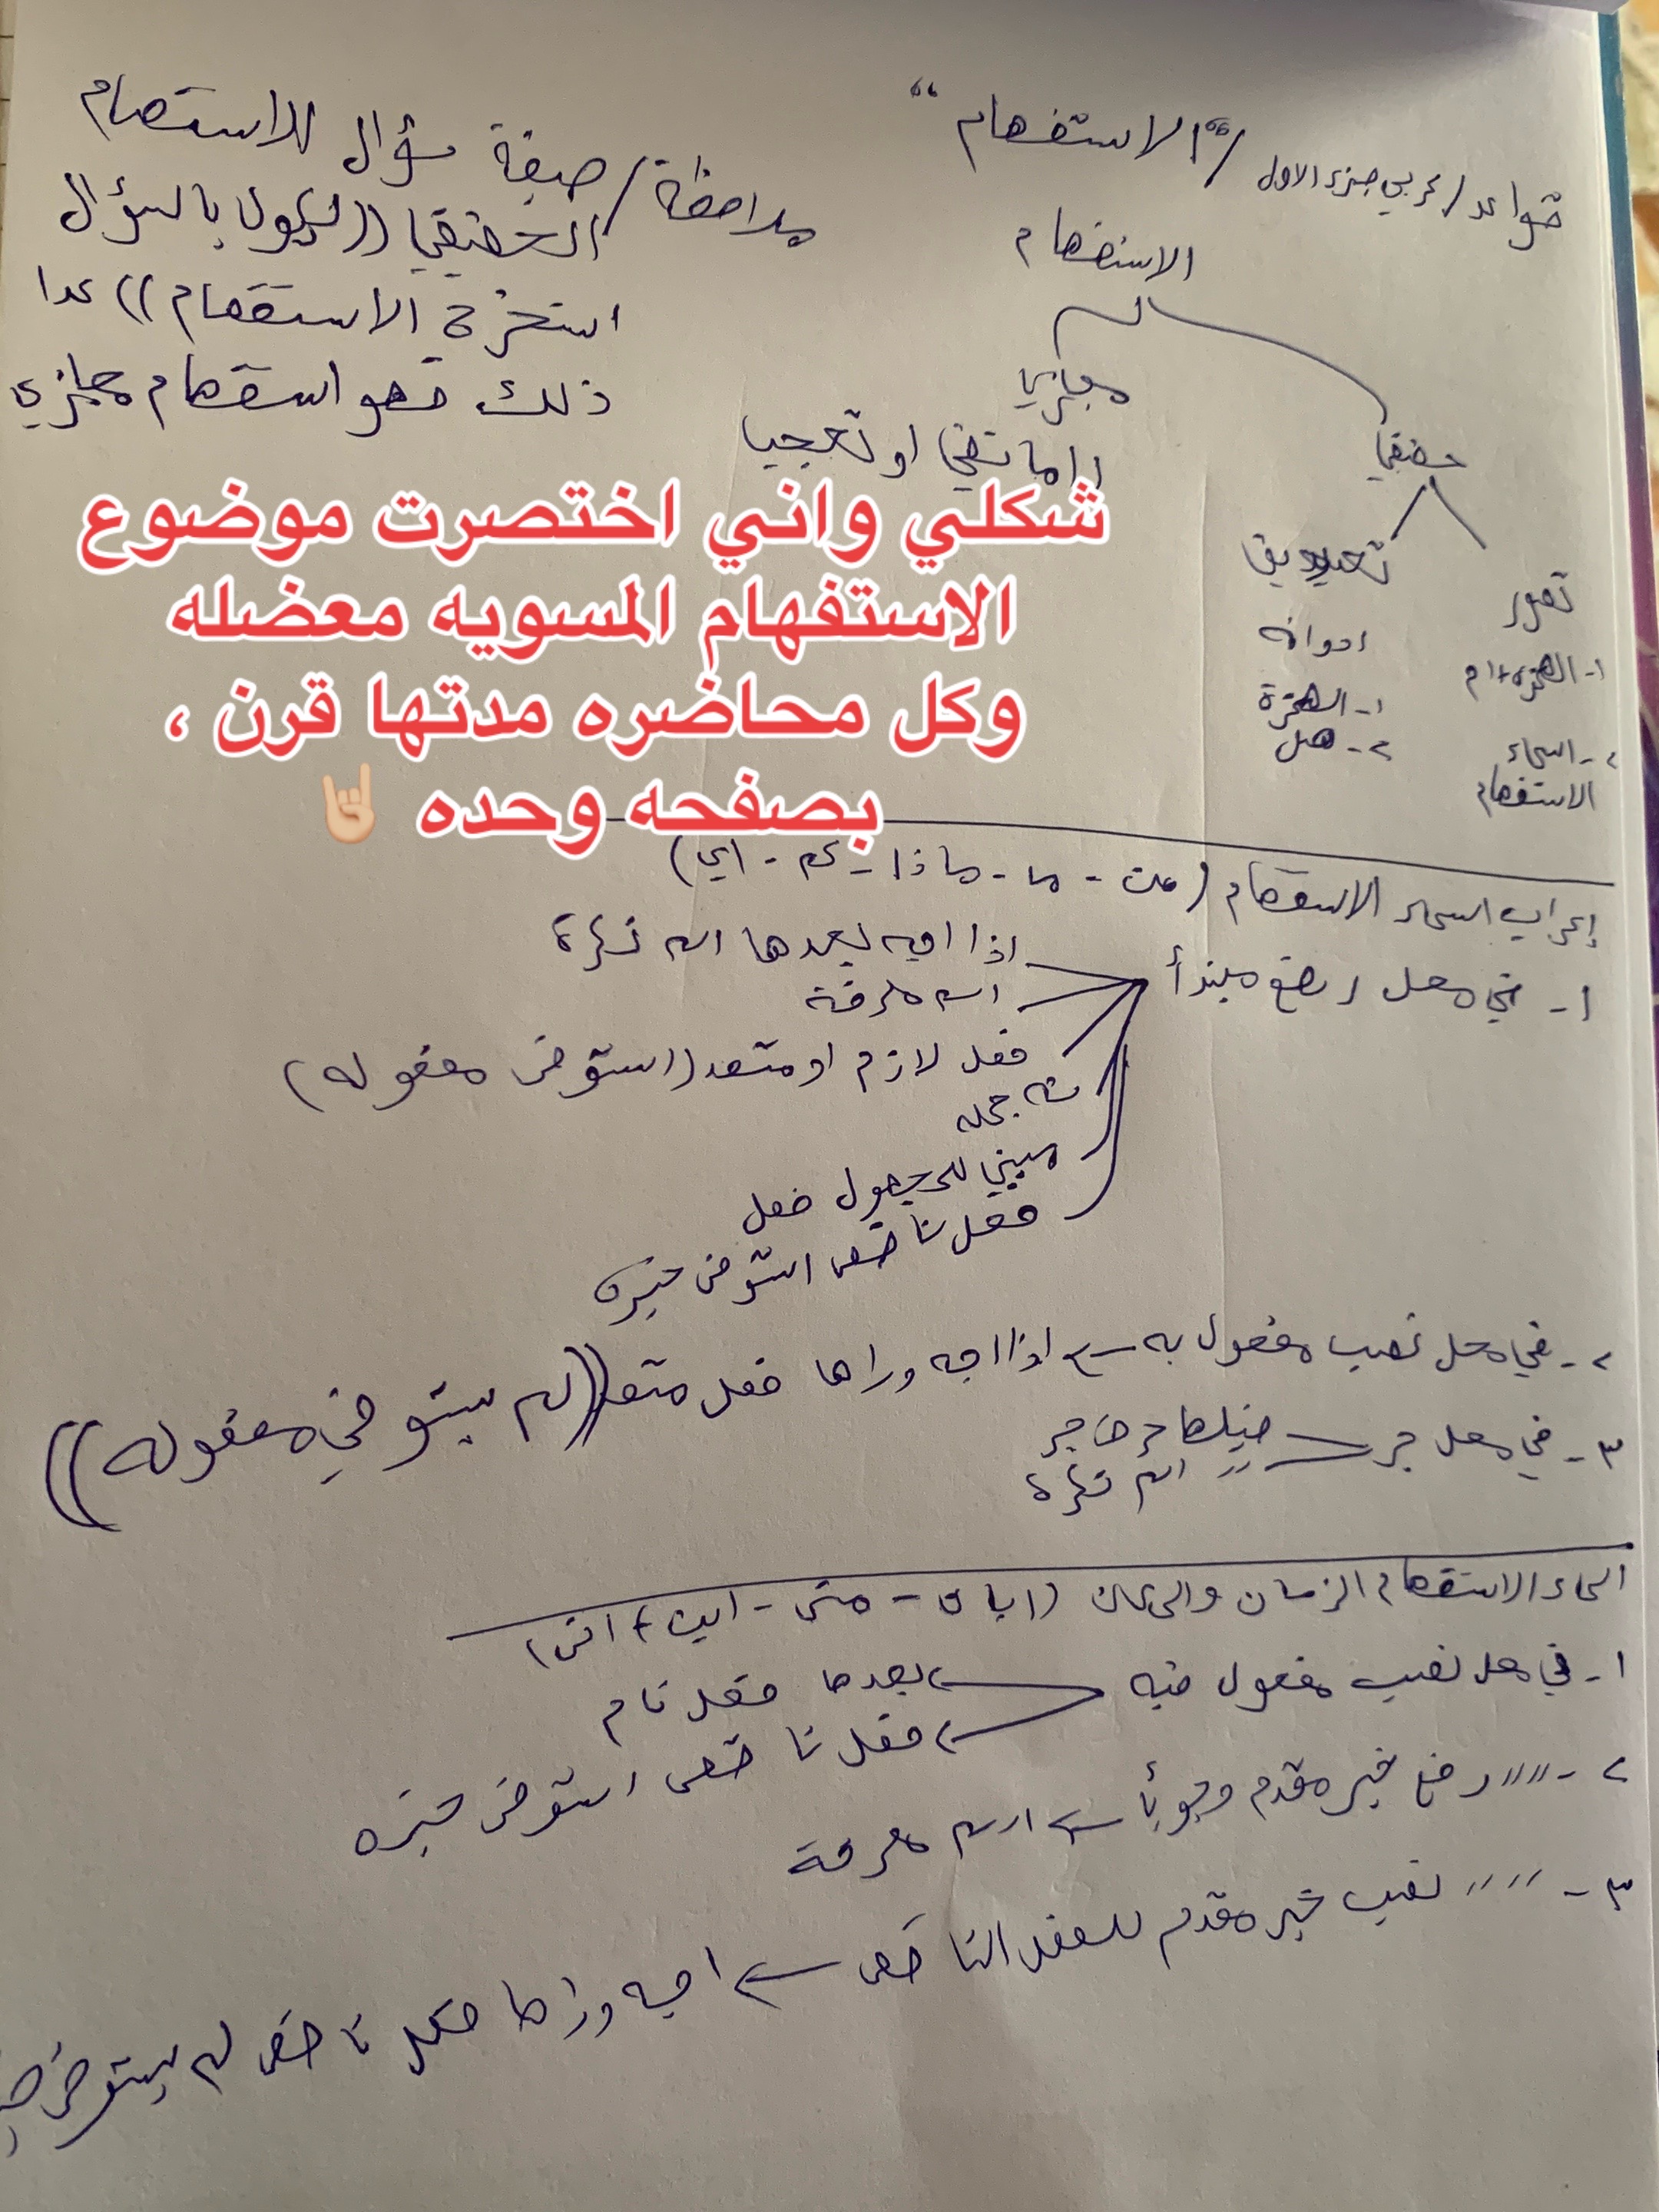 قواعد/عربي جزء الاول/"الاستفهام"
الاستفهام
مجازي
اما نفي او تعجب
حقيقي
تصور
١- الهمزة + ام
٢- اسماء
الاستفهام
تصديق
ادواته
١- الهمزة
٢- هل
ملاحظة/صيغة سؤال للاستفهام
الحقيقي ((يكول بالسؤال
استخرج الاستفهام)) عدا
ذلك فهو استفهام مجازي
شكلي واني اختصرت موضوع
الاستفهام المسويه معضله
وكل محاضره مدتها قرن ،
بصفحه وحده 🤘🏻
إعراب اسماء الاستفهام (من - ما - ماذا - كم - اي)
١- في محل رفع مبتدأ
اذا اجه بعدها اسم نكرة
اسم معرفة
فعل لازم او متعد (استوفى مفعوله)
شبه جمله
مبني للمجهول فعل
فعل ناقص استوفى خبره
٢- في محل نصب مفعول به اذا اجه وراها فعل متعد ((لم يستوفي مفعوله))
٣- في محل جر قبلها حرف جر
" اسم نكرة
اسماء الاستفهام الزمان والمكان (ايان - متى - اين + انى)
١- في محل نصب مفعول فيه بعدها فعل تام
فعل ناقص استوفى خبره
٢- " " رفع خبر مقدم وجوبأ اسم معرفة
٣- " " نصب خبر مقدم للفعل الناقص اجه وراها فعل ناقص لم يستوفي